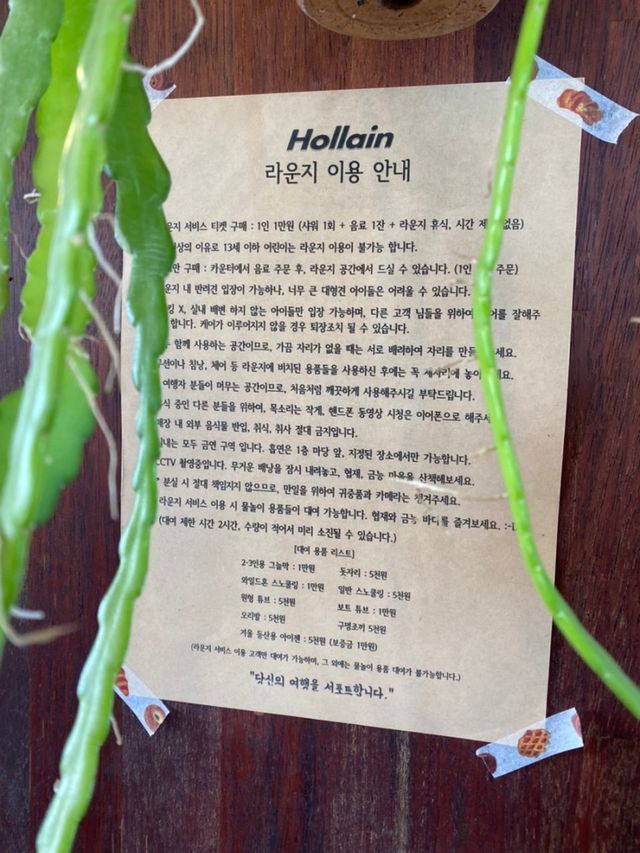 Hollain
라운지 이용 안내
서비스 티켓 구매 : 1인 1만원 (샤워 1회 + 음료 1잔 + 라운지 휴식, 시간 없음)
이유로 13세 이하 어린이는 라운지 이용이 불가능 합니다.
구매 : 카운터에서 음료 주문 후, 라운지 공간에서 드실 수 있습니다. (1인 주문)
내 반려견 입장이 가능하나, 너무 큰 대형견 아이들은 어려울 수 있습니다.
X, 실내 배변 하지 않는 아이들만 입장 가능하며, 다른 고객 님들을 위하여 잘해주
합니다. 케어가 이루어지지 않을 경우 퇴장조치 될 수 있습니다.
함께 사용하는 공간이므로, 가끔 자리가 없을 때는 서로 배려하여 자리를
침낭, 체어 등 라운지에 비치된 용품들을 사용하신 후에는 꼭
여행자 분들이 머무는 공간이므로, 처음처럼 깨끗하게 사용해주시길 부탁드립니다.
중인 다른 분들을 위하여, 목소리는 작게, 핸드폰 동영상 시청은 이어폰으로
내 외부 음식물 반입, 취식, 취사 절대 금지입니다.
모두 금연 구역 입니다. 흡연은 1층 마당 앞, 지정된 장소에서만 가능합니다.
CCTV 촬영중입니다. 무거운 배낭을 잠시 내려놓고, 협재, 금능 마을을 산책해보세요.
* 분실 시 절대 책임지지 않으므로, 만일을 위하여 귀중품과 카메라는 챙겨주세요.
라운지 서비스 이용 시 물놀이 용품들이 대여 가능합니다. 협재와 금능 바다를 즐겨보세요. :-D
(대여 제한 시간 2시간, 수량이 적어서 미리 소진될 수 있습니다.)
[대여 용품 리스트]
2-3인용 그늘막 : 1만원 돗자리 : 5천원
와일드혼 스노쿨링 : 1만원 일반 스노쿨링 : 5천원
원형 튜브 : 5천원 보트 튜브 : 1만원
오리발 : 5천원 구명조끼 5천원
겨울 등산용 아이젠 : 5천원 (보증금 1만원)
(라운지 서비스 이용 고객만 대여가 가능하며, 그 외에는 물놀이 용품 대여가 불가능합니다.)
"당신의 여행을 서포트합니다."